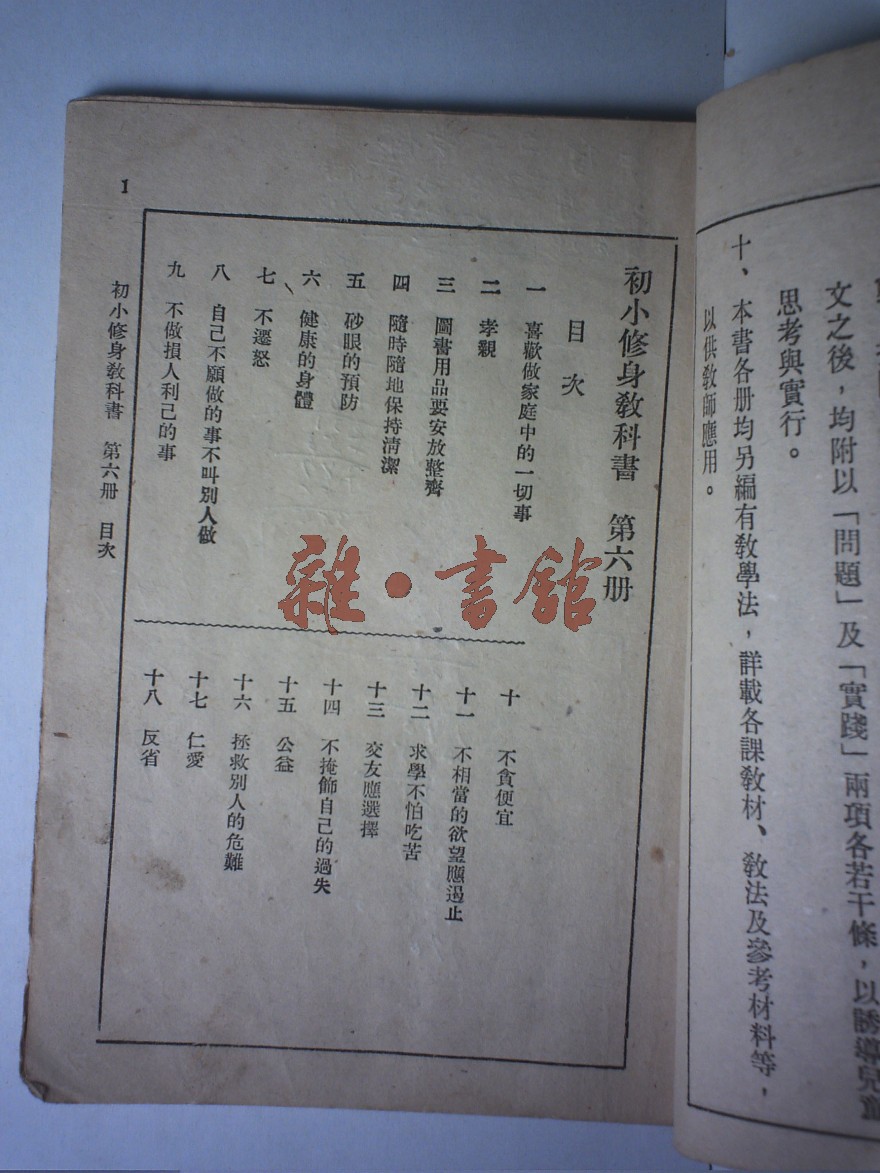 文之後，均附以「問題」及「實踐」兩項各若干條，以誘導兒童
思考與實行。
十、本書各册均另編有教學法，詳載各課教材、教法及參考材料等，
以供教師應用。
初小修身教科書 第六册
目次
一 喜歡做家庭中的一切事
二 孝親
三 圖書用品要安放整齊
四 隨時隨地保持清潔
五 砂眼的預防
六 健康的身體
七 不遷怒
八 自己不願做的事不叫別人做
九 不做損人利己的事
十 不貪便宜
十一 不相當的欲望應遏止
十二 求學不怕吃苦
十三 交友應選擇
十四 不掩飾自己的過失
十五 公益
十六 拯救別人的危難
十七 仁愛
十八 反省
初小修身教科書 第六册 目次
1
雜·書館